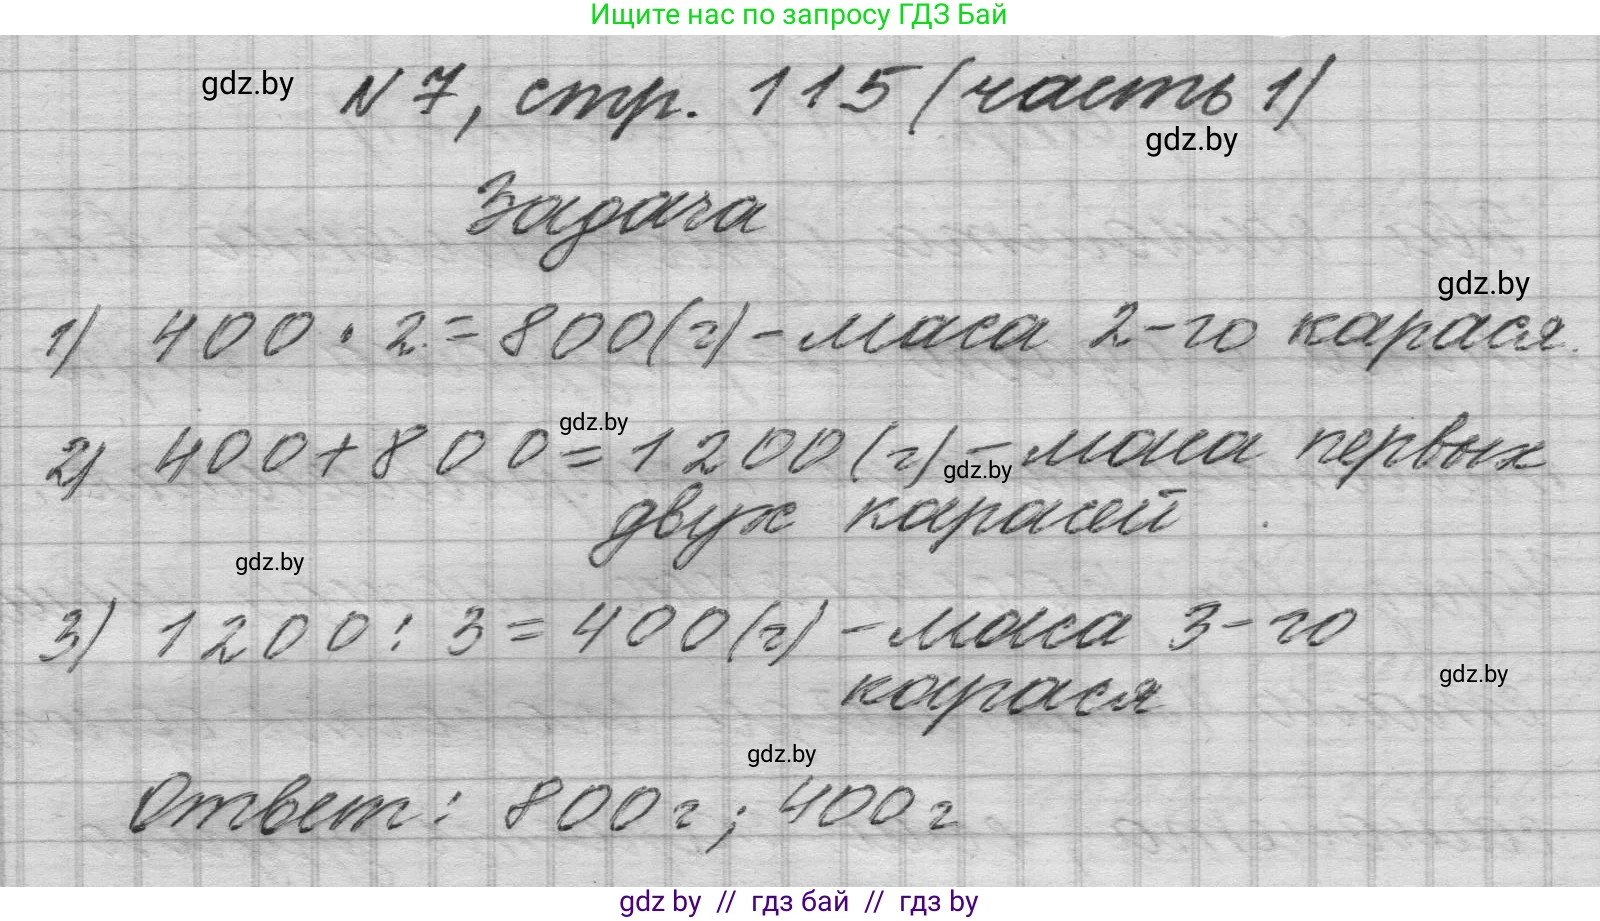 Ищите нас по запросу ГДЗ Бай
gdz.by
N 7, стр. 115 (часть 1)
gdz.by
Задача
gdz.by
1) 400 · 2 = 800 (г) - маса 2-го карася.
gdz.by
2) 400 + 800 = 1200 (г) - маса первых
gdz.by
двух карасей
gdz.by
3) 1200 : 3 = 400 (г) - маса 3-го
gdz.by
карася
gdz.by
Ответ: 800 г; 400 г
gdz by // гдз бай // гдз by